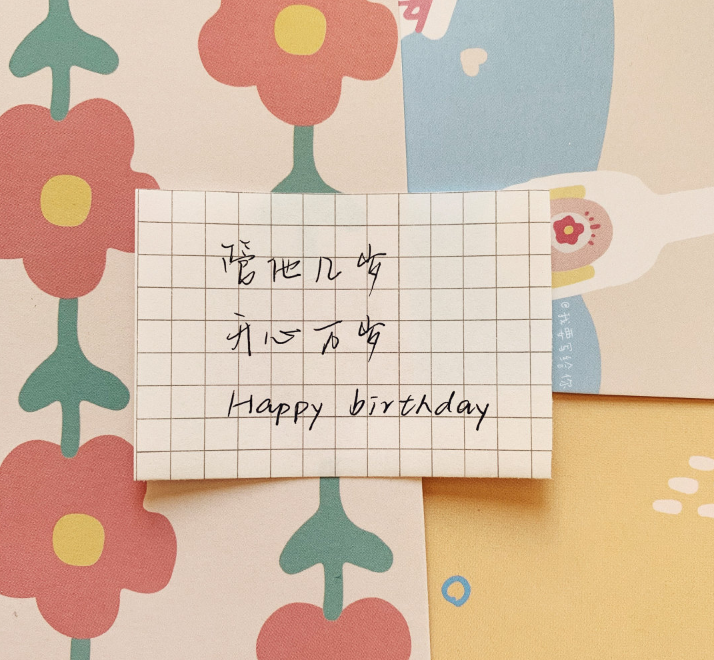 管他几岁
开心万岁
Happy birthday
@我要写给你